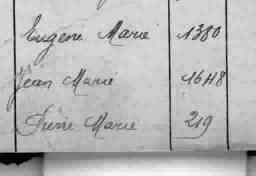 Eugène Marie 1380
Jean Marie 1648
Pierre Marie 219